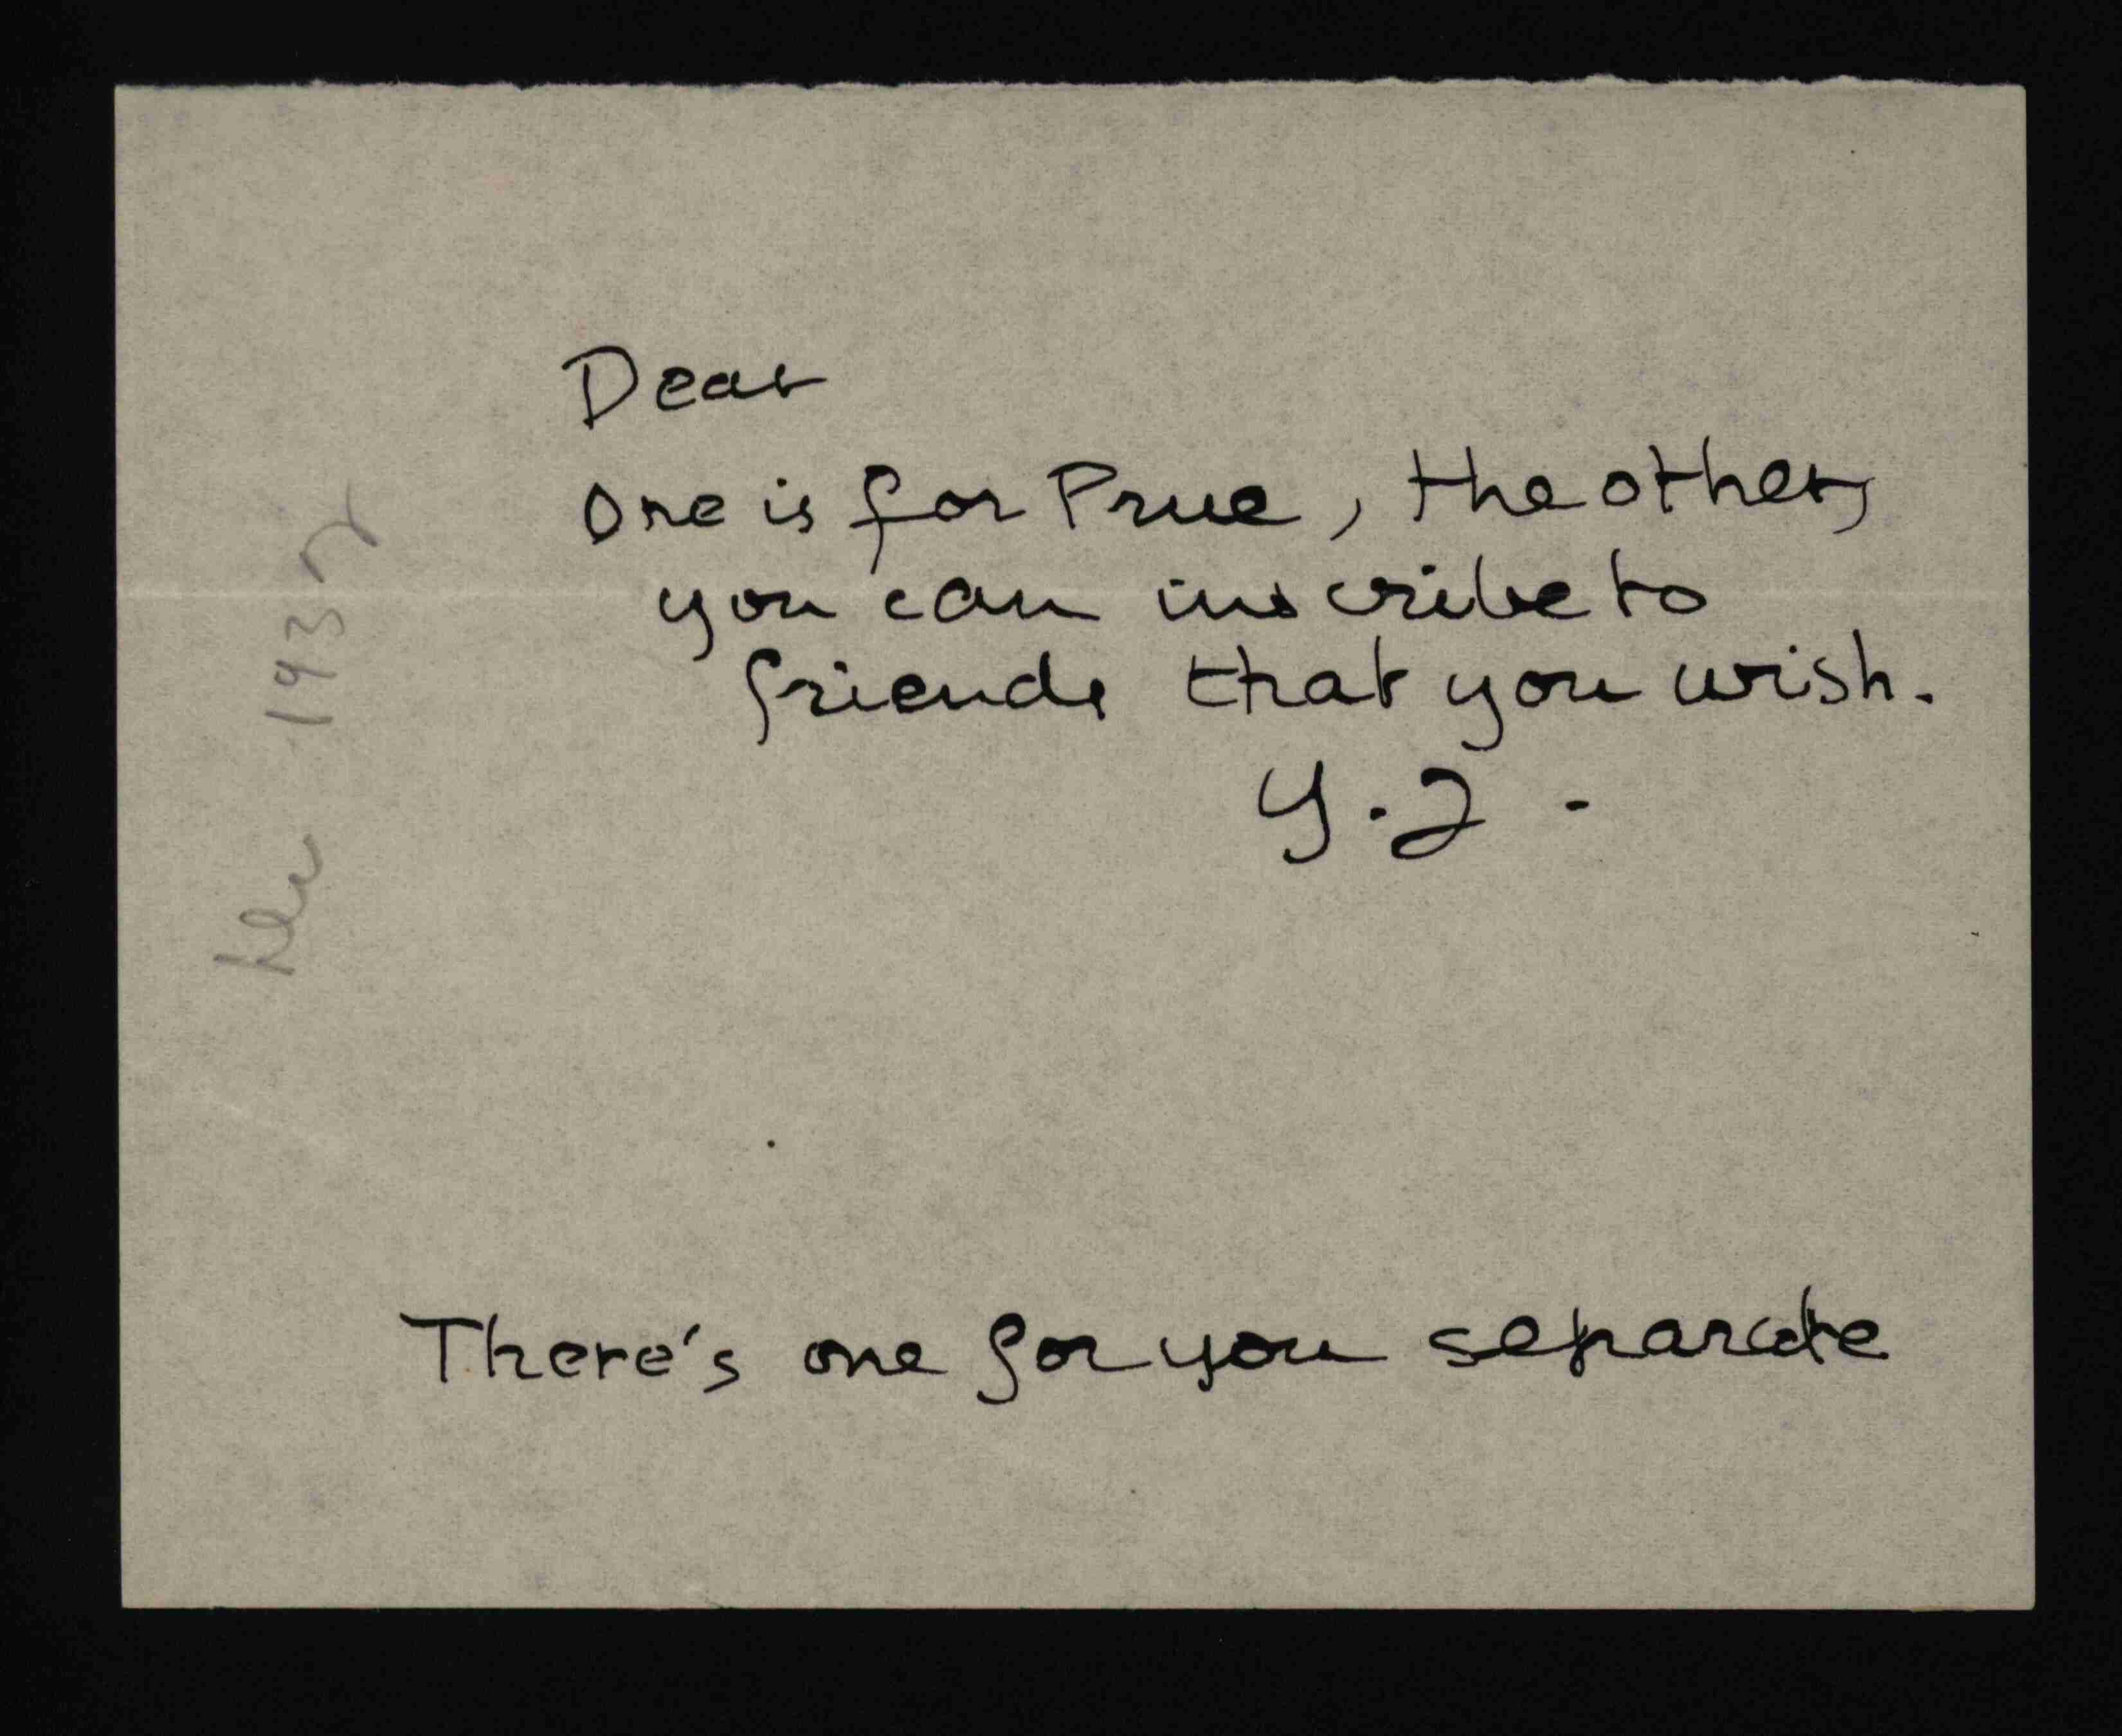 Dear
One is for Prue, the others
you can inscribe to
friends that you wish.
Y.Z.
There's one for you separate